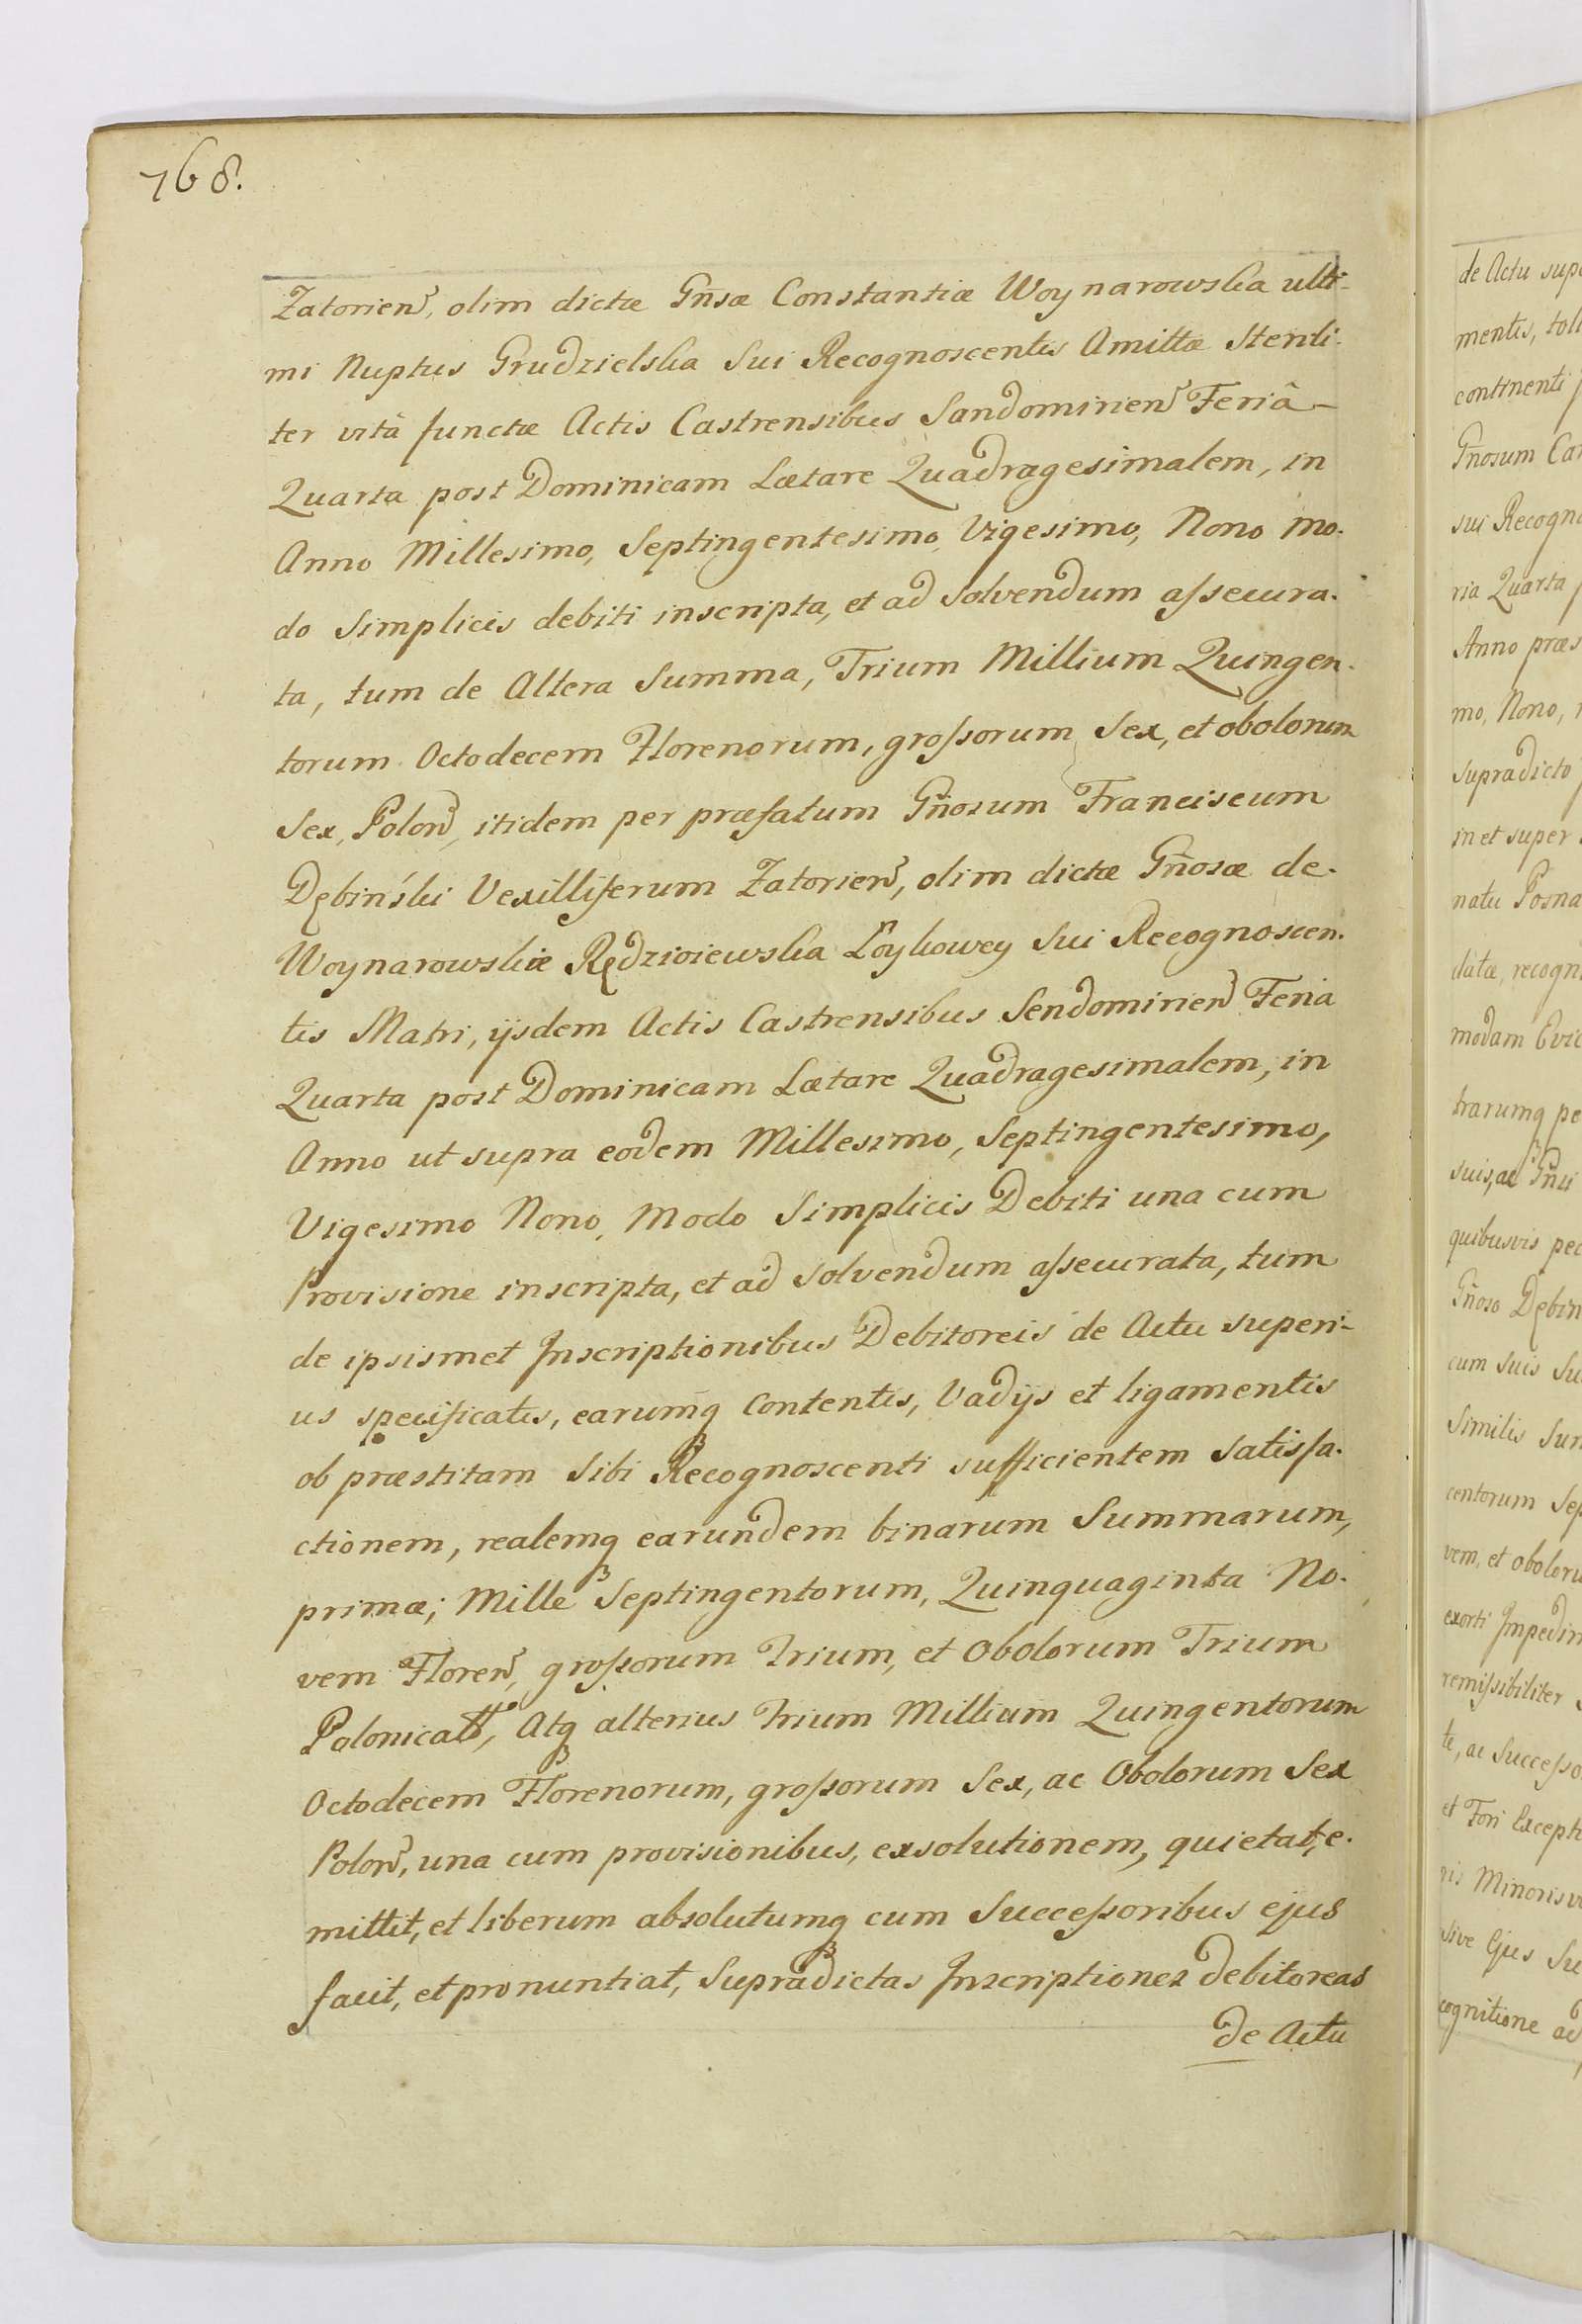 768.
Zatorien̄, olim dictæ Gn̄sæ Constantiæ Woynarowska ulti-
mi Nuptus Grudzielska Sui Recognoscentis Amittæ Sterili-
ter vitâ functæ Actis Castrensibus Sandomirien̄ Feriâ-
Quarta post Dominicam Lætare Quadragesimalem, in
Anno Millesimo, Septingentesimo, Vigesimo, Nono mo-
do Simplicis debiti inscripta, et ad Solvendum assecura-
ta, tum de Altera Summa, Trium Millium Quingen-
torum Octodecem Florenorum, grossorum Sex, et obolorum
Sex, Polon̄, itidem per præfatum Gn̄osum Franciscum
Dębiński Vexilliferum Zatorien̄, olim dictæ Gn̄osæ de-
Woynarowskie Rędzioiewska Łoykowey Sui Recognoscen-
tis Matri, ijsdem Actis Castrensibus Sendomirien̄ Feria
Quarta post Dominicam Lætare Quadragesimalem, in
Anno ut supra eodem Millesimo, Septingentesimo,
Vigesimo Nono, Modo Simplicis Debiti una cum
Provisione inscripta, et ad Solvendum assecurata, tum
de ipsismet Inscriptionibus Debitoreis de Actu superi-
us specificatis, earumq̃ contentis, Vadijs et ligamentis
ob præstitam Sibi Recognoscenti sufficientem Satisfa-
ctionem, realemq̃ earundem binarum Summarum,
primæ; Mille Septingentorum, Quinquaginta No-
vem Floren̄, grossorum Trium, et Obolorum Trium
Polonical̃, Atq̃ alterius Trium Millium Quingentorum
Octodecem Florenorum, grossorum Sex, ac Obolorum Sex
Polon̄, una cum provisionibus, exsolutionem, quietat, e-
mittit, et liberum absolutumq̃ cum Successoribus ejus
facit, et pronuntiat, Supradictas Inscriptiones debitoreas
de Actu
de Actu sup
mentis, tol
continenti
Gn̄osum Ca
sui Recogno
ria Quarta
Anno præs
mo, Nono,
Supradicto
in et super
natu Posna
datæ, recogn
modam Evic
trarumq̃ pe
suis, ac Gn̄si
quibusvis pe
Gn̄oso Dębin
cum Suis Su
Similis Sum
centorum Sep
vem, et oboloru
exorti Impedim
remissibiliter
te, ac Successo
et Fori Excepti
nis Minorisv
sive Ejus Su
cognitione ad